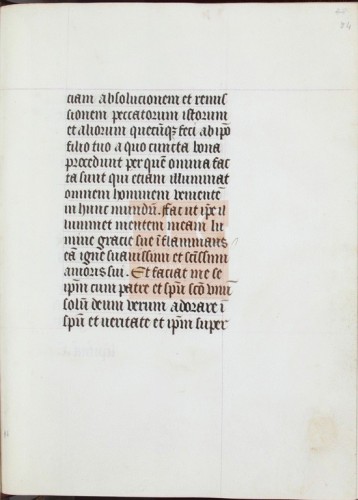 ciam absolucionem et remis
sionem peccatorum istorum
et aliorum quecūqꝫ feci ab ip̄o
filio tuo a quo cuncta bona
procedunt per quē omnia fac
ta sunt qui eciam illuminat
omnem hominem venientē
in hunc mundū. fac ut ip̄e il
luminet mentem meam lu
mine gracie sue īflammans
eā igne suauissimi et sc̄issimi
amoris sui. Et faciat me se
ip̄m cum patre et sp̄u sc̄o vnū
solū deum verum adorare ī
sp̄u et ueritate et ip̄m super